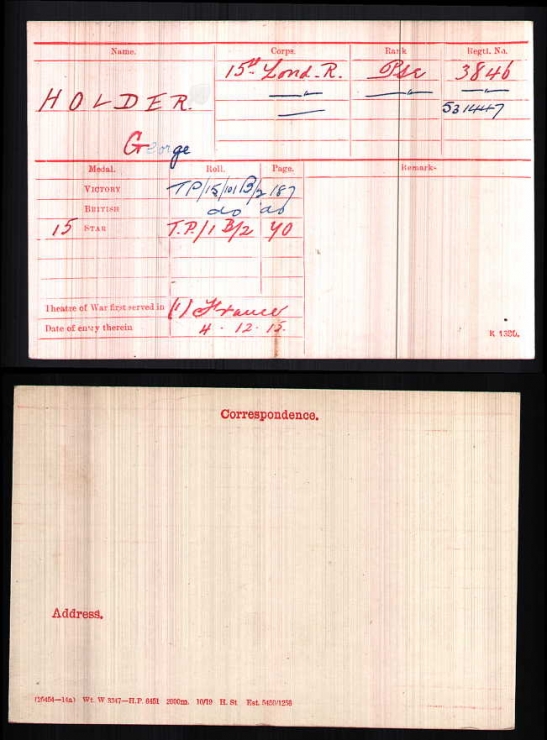 Name. Corps. Rank Regtl. No.
15th Lond. R. Pte 3846
HOLDER.
531447
George
Medal. Roll. Page. Remarks
VICTORY TP/15/101B/2 187
BRITISH do do
15 STAR T.P./1 B/2 40
Theatre of War first served in (1) France
Date of entry therein 4 . 12 . 15.
K 1380.
Correspondence.
Address.
Wt. W 3347—H.P. 6451 2000m. 10/19 H. St